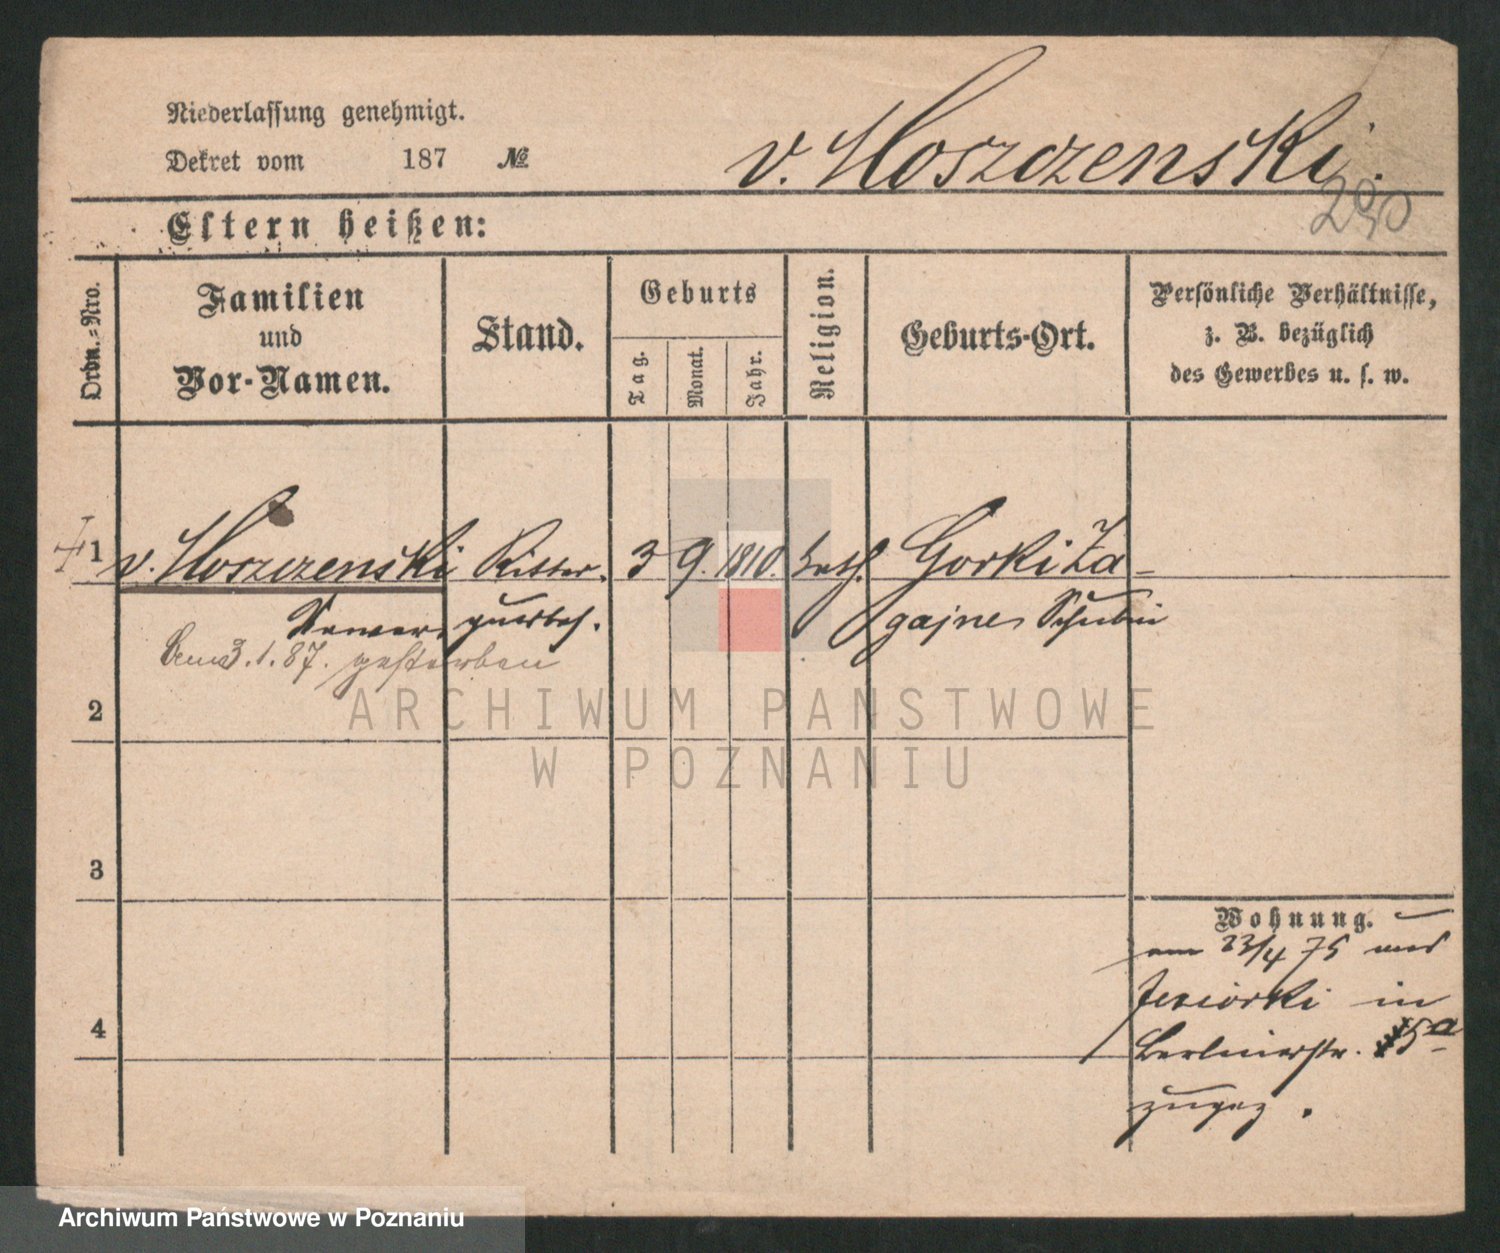 Niederlassung genehmigt.
v. Koszczenski.
Dekret vom 187 №
290
Eltern heißen:
Ordn.-Nro.
Familien und Vor-Namen.
Stand.
Geburts
Tag.
Monat.
Jahr.
Religion.
Geburts-Ort.
Persönliche Verhältnisse, z. B. bezüglich des Gewerbes u. s. w.
1 v. Koszczenski Ritter- 3 9. 1810. kath. Gorki Za-
Xawer gutsbes. gajne Schubin
am 3.1.87. gestorben
2
3
4
Wohnung.
am 23/4 75 aus
Jeziorki in
Berlinerstr. 15a
zugez.
ARCHIWUM PAŃSTWOWE
W POZNANIU
Archiwum Państwowe w Poznaniu